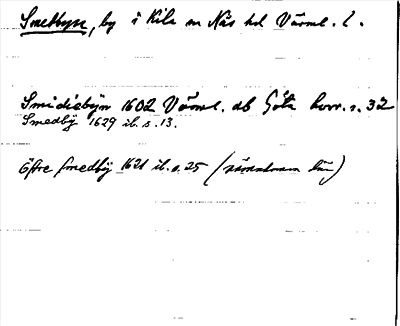 Smedbyn, by i Kila sn Näs hd Värml. l.
Smidiebÿn 1602 Värml. ab Göta hovr. s. 32
Smedbÿ 1629 ib. s. 13.
öfre Smedbÿ 1621 ib. s. 25 (